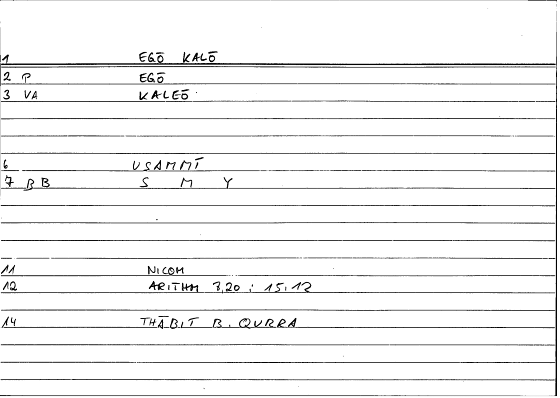 1 EGŌ KALŌ
2 P EGŌ
3 VA KALEŌ
6 USAMMĪ
7 BB S M Y
11 NICOM
12 ARITHM 3,20 : 15,12
14 THĀBIT B. QURRA